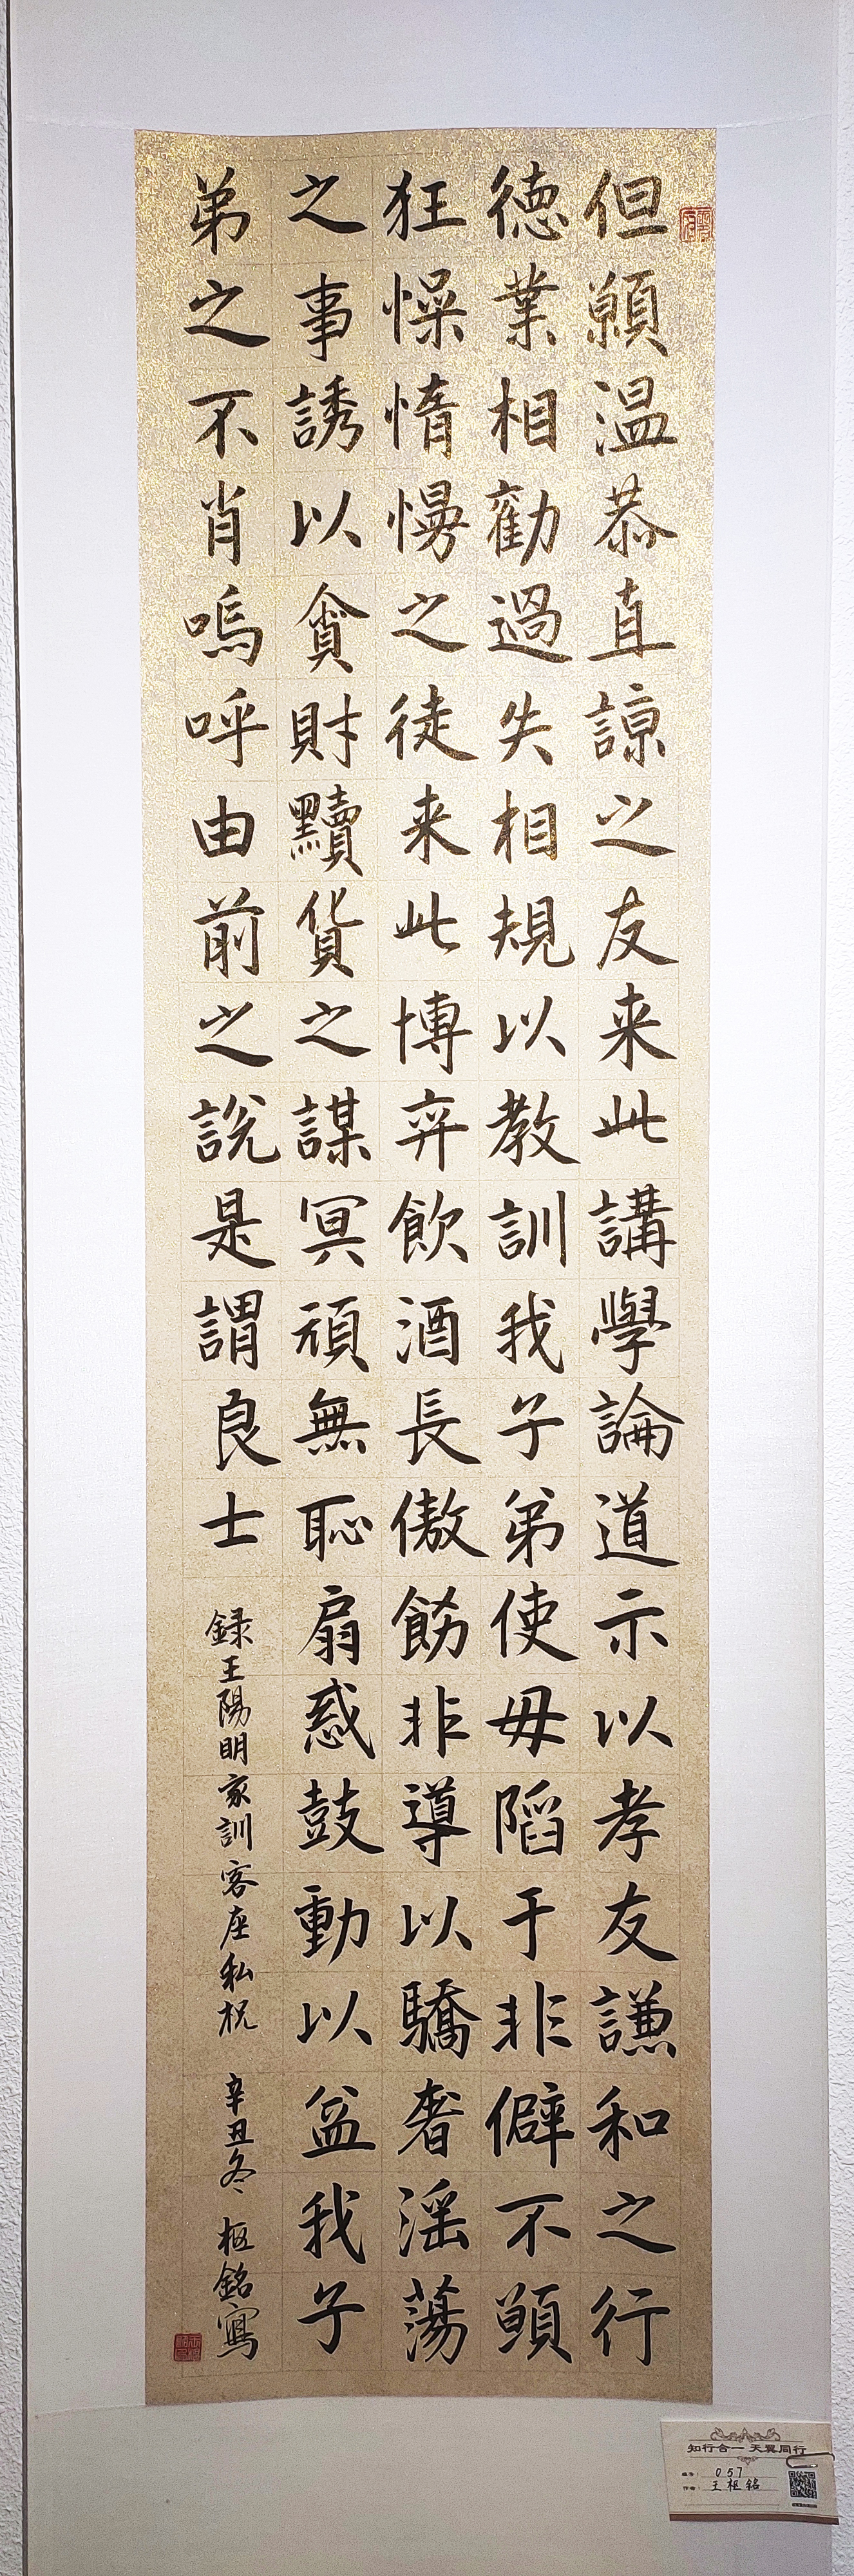 但願温恭直諒之友来此講學論道示以孝友謙和之行
徳業相勸過失相規以教訓我子弟使毋陷于非僻不願
狂懆惰慢之徒来此博弈飲酒長傲飾非導以驕奢淫蕩
之事誘以貪財黷貨之謀冥頑無恥扇惑鼓動以益我子
弟之不肖嗚呼由前之説是謂良士
録王陽明家訓客座私祝
辛丑冬 枢銘寫
知行合一 天翼同行
编号: 057
作者: 王枢铭